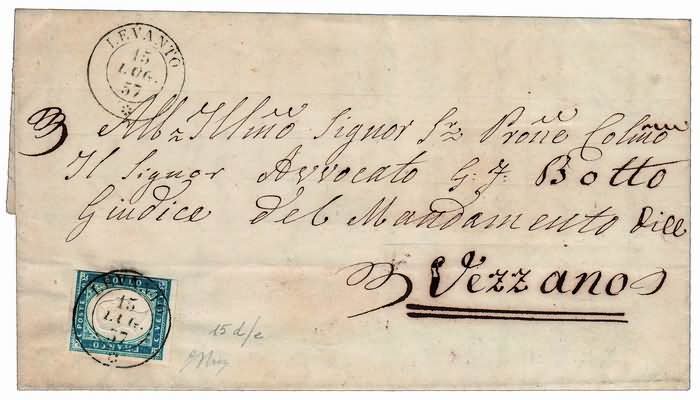 LEVANTO
15
LUG.
57
All Illmo Signor Sr Prone Colmo
Il Signor Avvocato G. F. Botto
Giudice del Mandamento di
Vezzano
BOLLO
POSTE
FRANCO
15
LUG.
57
15 d/e